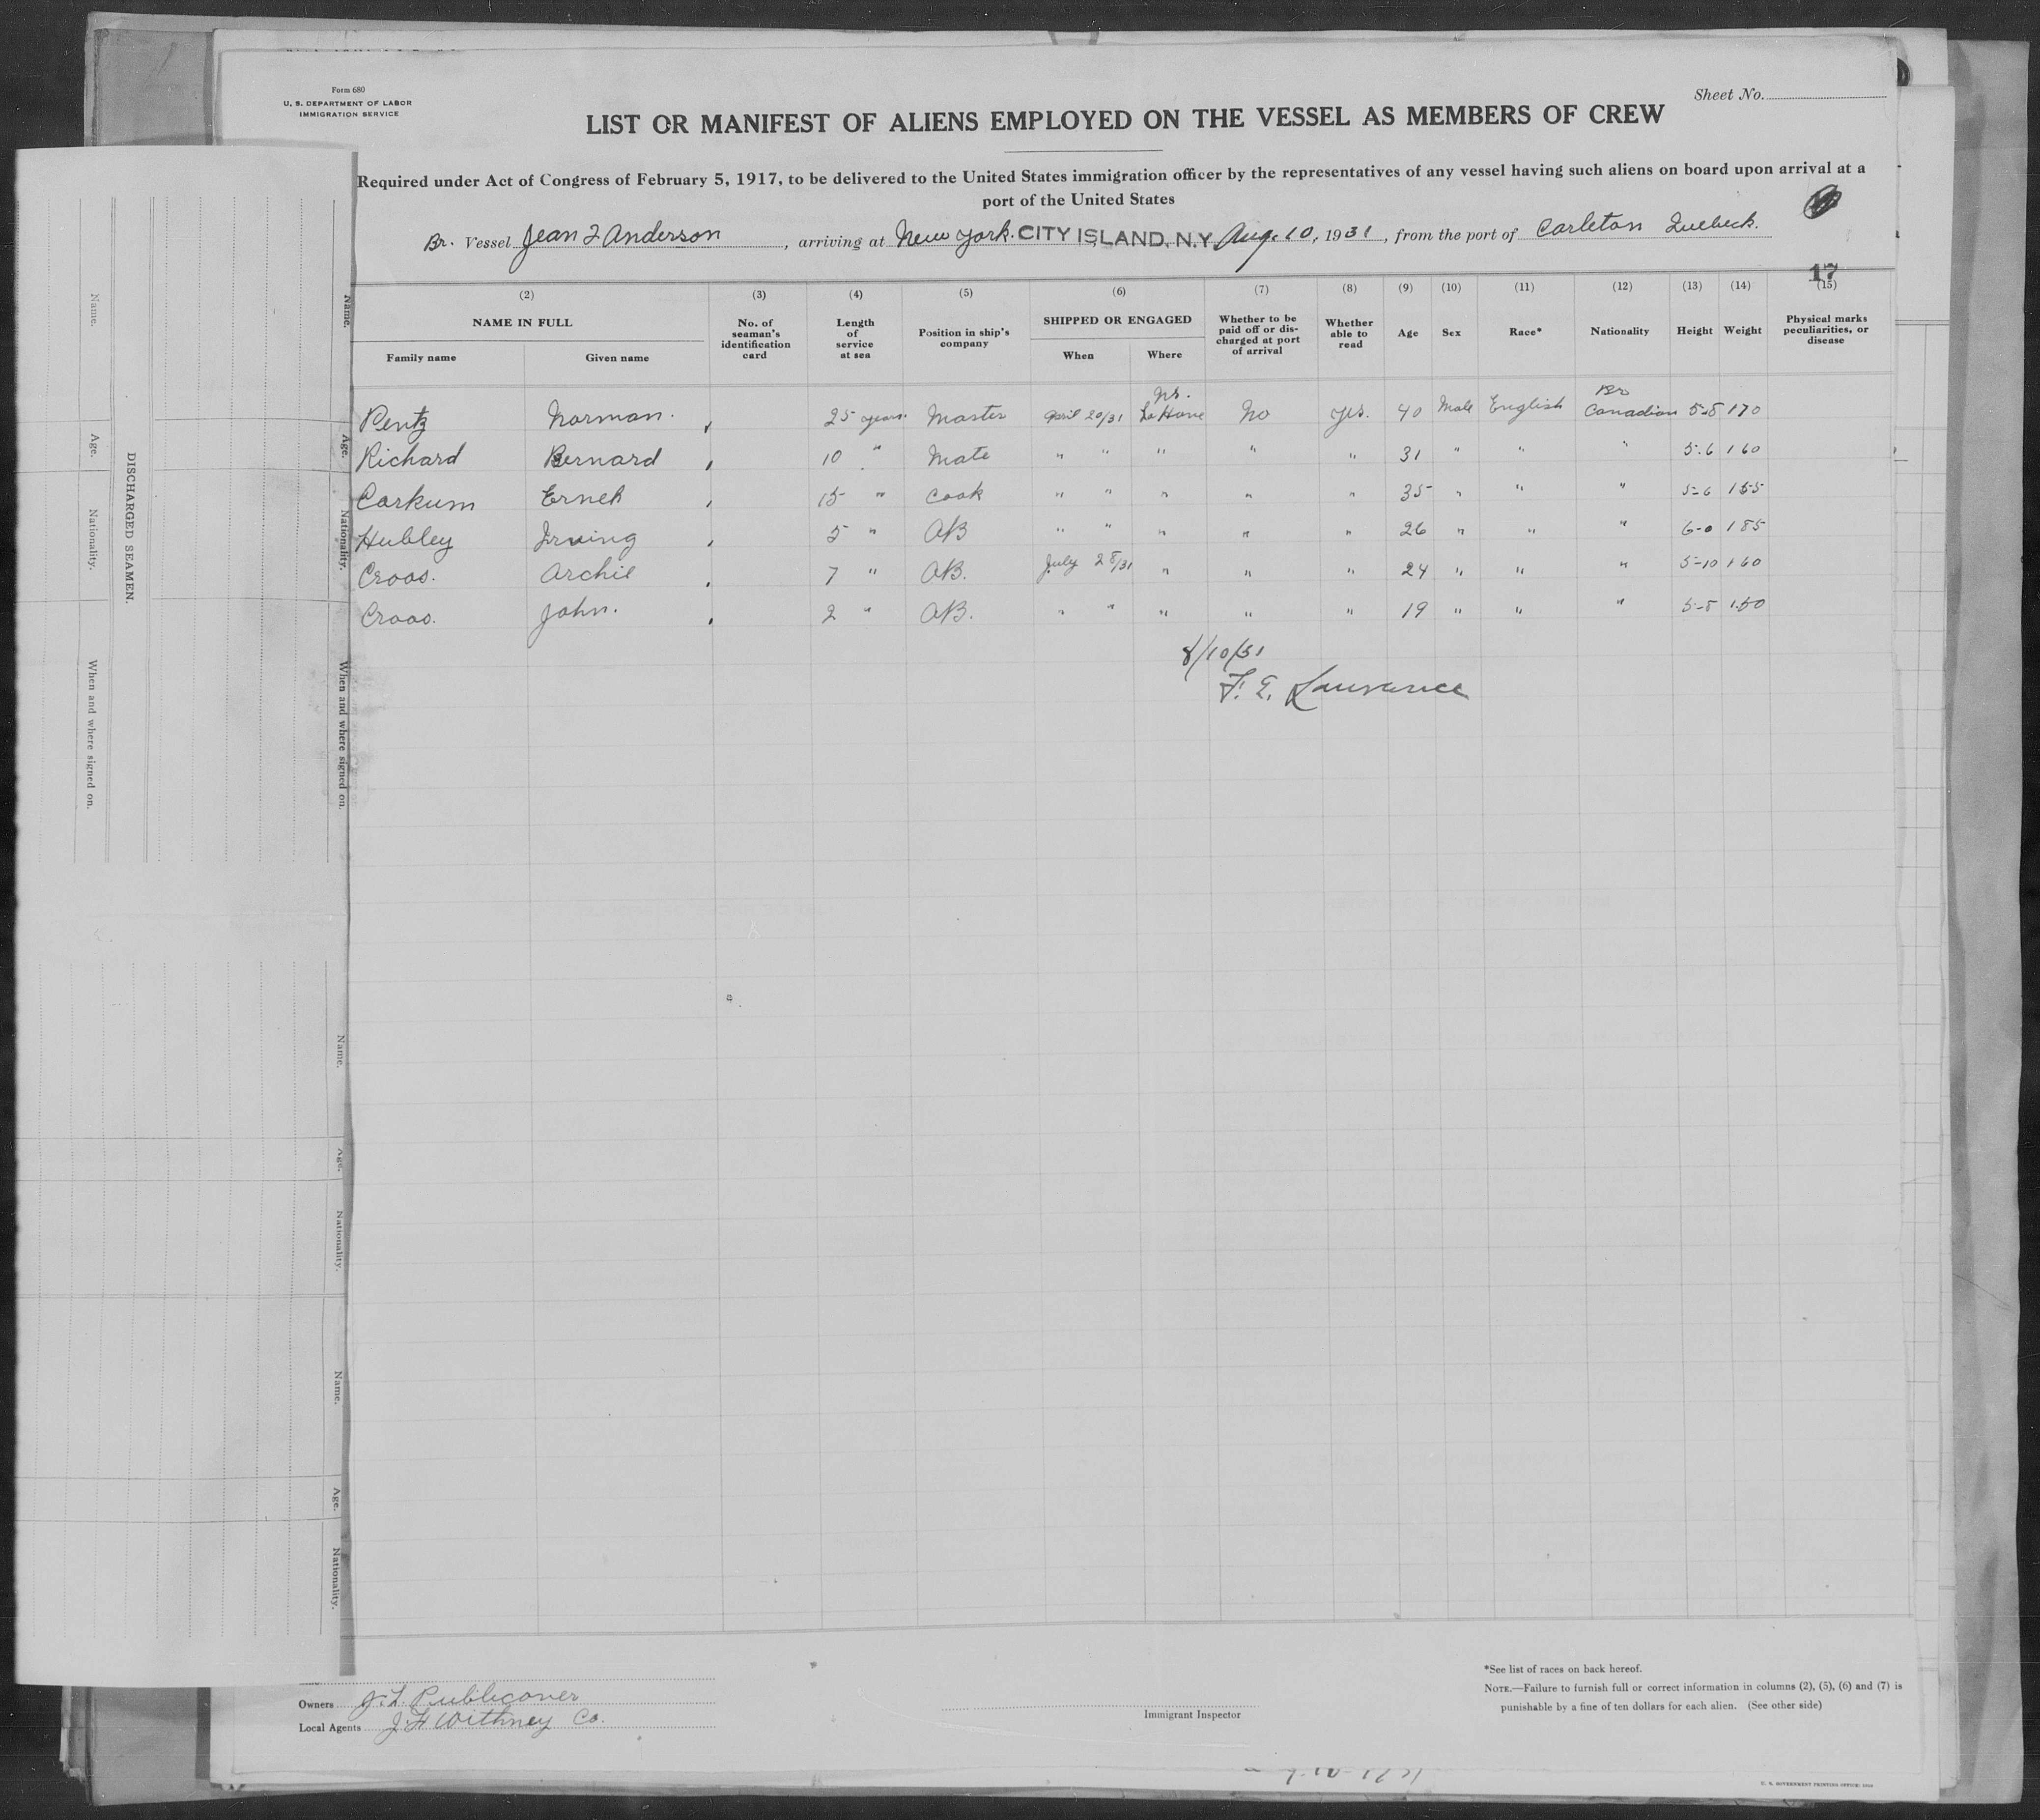 Form 680
U. S. DEPARTMENT OF LABOR
IMMIGRATION SERVICE
Sheet No.
LIST OR MANIFEST OF ALIENS EMPLOYED ON THE VESSEL AS MEMBERS OF CREW
Required under Act of Congress of February 5, 1917, to be delivered to the United States immigration officer by the representatives of any vessel having such aliens on board upon arrival at a
port of the United States
Br. Vessel Jean F Anderson, arriving at New York. CITY ISLAND, N.Y. Aug. 10, 1931, from the port of Carleton Quebeck.
17
(2) (3) (4) (5) (6) (7) (8) (9) (10) (11) (12) (13) (14) (15)
NAME IN FULL
Family name Given name
No. of seaman's identification card
Length of service at sea
Position in ship's company
SHIPPED OR ENGAGED
When Where
Whether to be paid off or discharged at port of arrival
Whether able to read
Age
Sex
Race*
Nationality
Height
Weight
Physical marks peculiarities, or disease
Pentz Norman. 25 years Master April 20/31 NS. LaHave No yes. 40 Male English Br Canadian 5-8 170
Richard Bernard 10 " Mate " " " " " 31 " " " 5-6 160
Corkum 15 " Cook " " " " " 35 " " " 5-6 155
Hubley Irving 5 " AB " " " " " 26 " " " 6-0 185
Croos. Archie 7 " AB. July 28/31 " " " 24 " " " 5-10 160
Croos. John. 2 " AB. " " " " " 19 " " " 5-8 150
8/10/31
F. E. Lawrence
DISCHARGED SEAMEN.
Name.
Age.
Nationality.
When and where signed on.
Name.
Age.
Nationality.
When and where signed on.
Name.
Age.
Nationality.
Name.
Age.
Nationality.
Owners J. L. Publicover
Local Agents J. F. Withney Co.
Immigrant Inspector
*See list of races on back hereof.
NOTE.—Failure to furnish full or correct information in columns (2), (5), (6) and (7) is
punishable by a fine of ten dollars for each alien. (See other side)